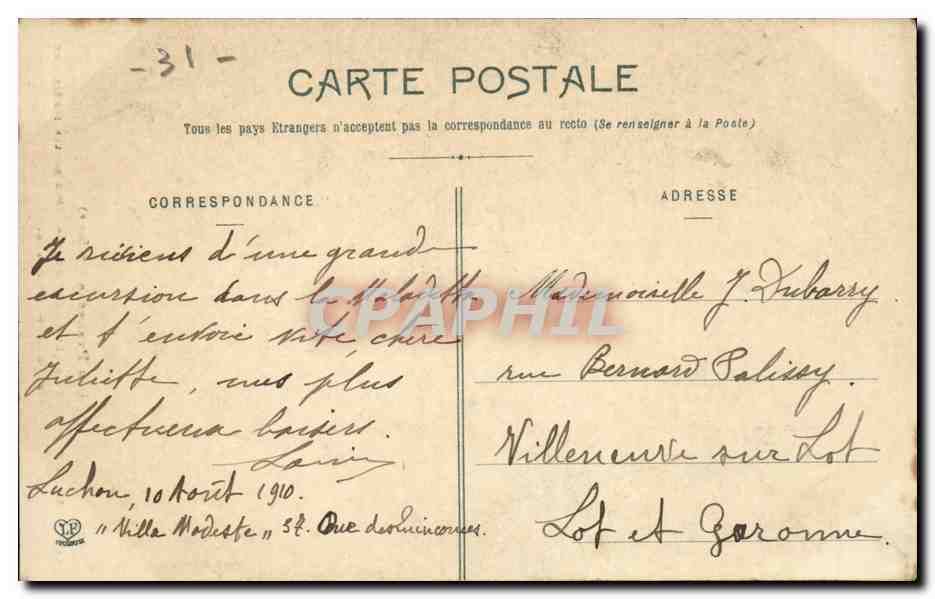 - 31 -
CARTE POSTALE
Tous les pays Etrangers n'acceptent pas la correspondance au recto (Se renseigner à la Poste)
CORRESPONDANCE
Je reviens d'une grande
excursion dans la Maladetta
et t'envoie vite, chère
Juliette, mes plus
affectueux baisers.
Luchon, 10 Août 1910.
"Villa Modeste" 37. Rue des Quinconces.
ADRESSE
Mademoiselle J. Dubarry
rue Bernard Palissy.
Villeneuve sur Lot
Lot et Garonne.
CPAPHIL